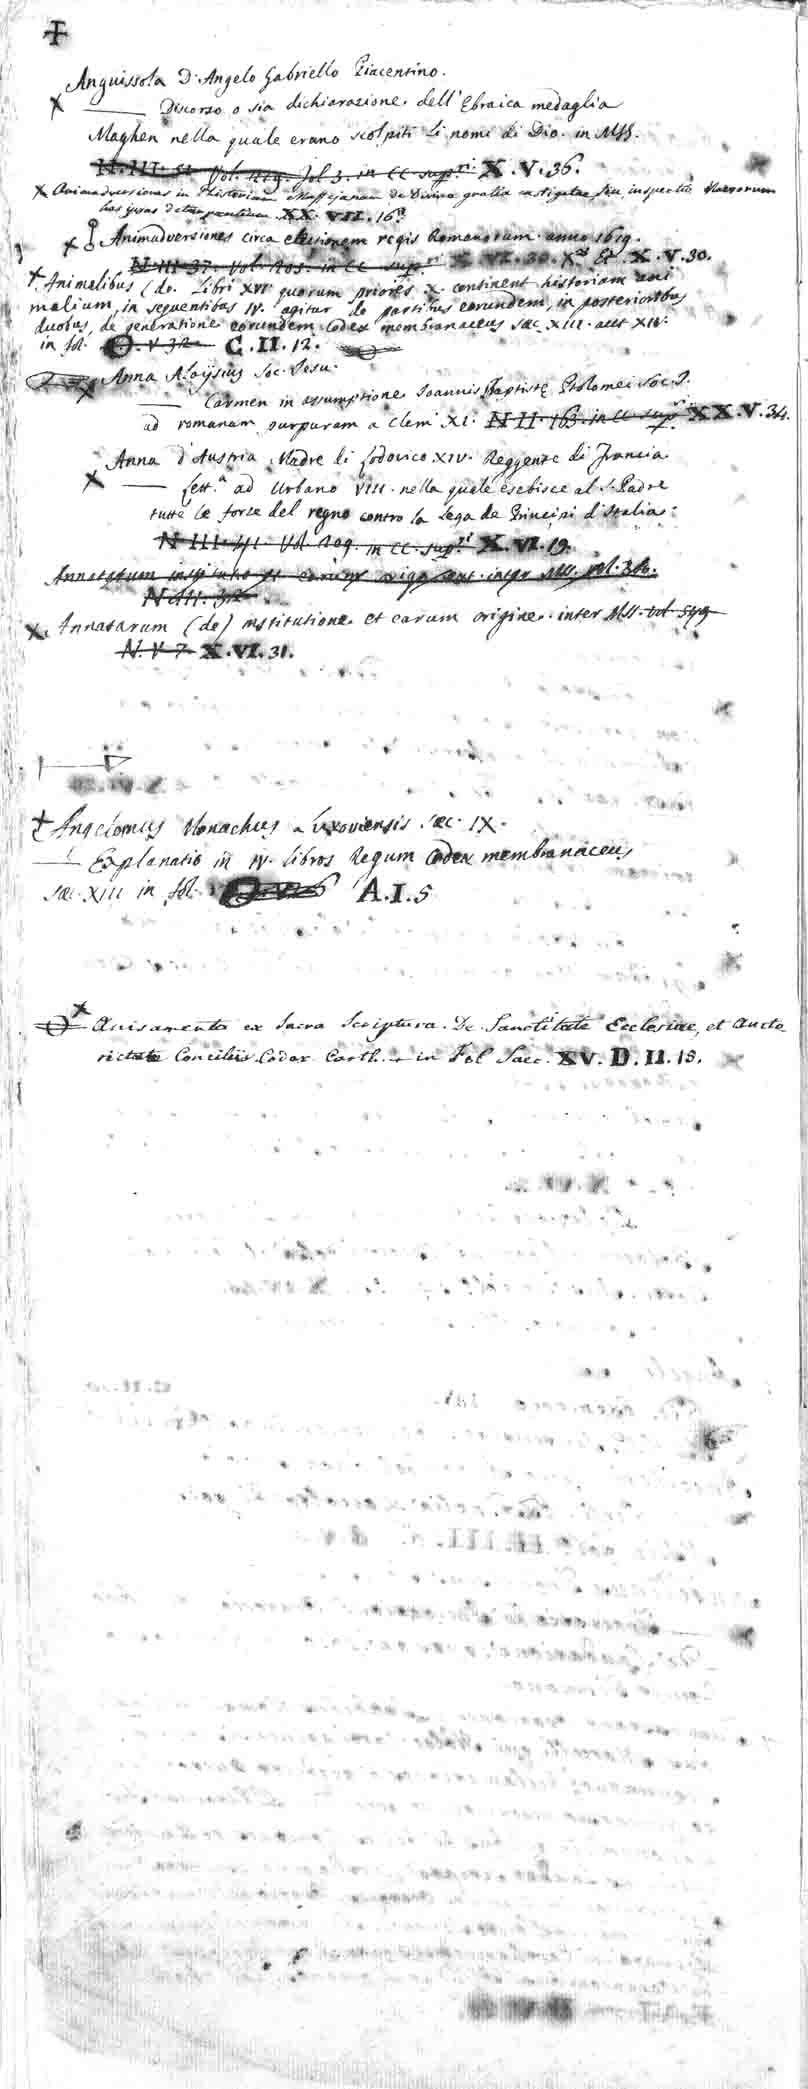 Anguissola D. Angelo Gabriello Piacentino.
X —— Discorso o sia dichiarazione dell'Ebraica medaglia
Maghen nella quale erano scolpiti li nomi di Dio. in MSS.
N. III. 51. Vol. 229. fol 3. in CC. sup.ri X. V. 36.
X Animadversiones in Historiam Maffejanam de Divina gratia castigatae, seu inspectio
XX. VII. 16
X Animadversiones circa electionem regis Romanorum anno 1619.
N. III. 37. Vol. 205. in CC. sup.ri X. VI. 30. X. V. 30.
X. Animalibus (de. Libri XVI quorum priores X. continent historiam ani
malium, in sequentibus IV. agitur de partibus eorundem, in posterioribus
duobus, de generatione eorundem Codex membranaceus sæc. XIII. aut XIV.
in fol. O. V 32 C. II. 12.
X Anna Aloysius Soc. Jesu.
—— Carmen in assumptione Joannis Baptistę Ptolomei Soc. J.
ad romanam purpuram a Clem. XI. N II. 163. in CC sup.ri XX. V. 34.
Anna d'Austria Madre di Lodovico XIV. Reggente di Francia
X —— Lett.a ad Urbano VIII. nella quale esebisce al S. Padre
tutte le forze del regno contro la Lega de Principi d'Italia.
N III. 41. Vol. 209. in CC. sup.ri X. VI. 19.
Annatarum institutio et earum orig. inter MSS. vol.
N. III.
X. Annatarum (de) institutione et earum origine. inter MSS. vol 549
N. V 7 X. VI. 31.
X Angelomus Monachus Luxoviensis sæc. IX.
—— Explanatio in IV. libros Regum Codex membranaceus
sæc. XIII in fol. A. I. 5
X
O Avisamenta ex Sacra Scriptura. De Sanctitate Ecclesiae, et aucto
ritate Conciliis. Codex Carth. in Fol Saec. XV. D. II. 13.